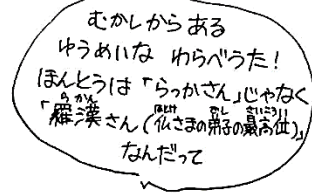 むかしからある
ゆうめいな わらべうた！
ほんとうは「らっかさん」じゃなく
「羅漢さん（仏さまの弟子の最高位）」
なんだって